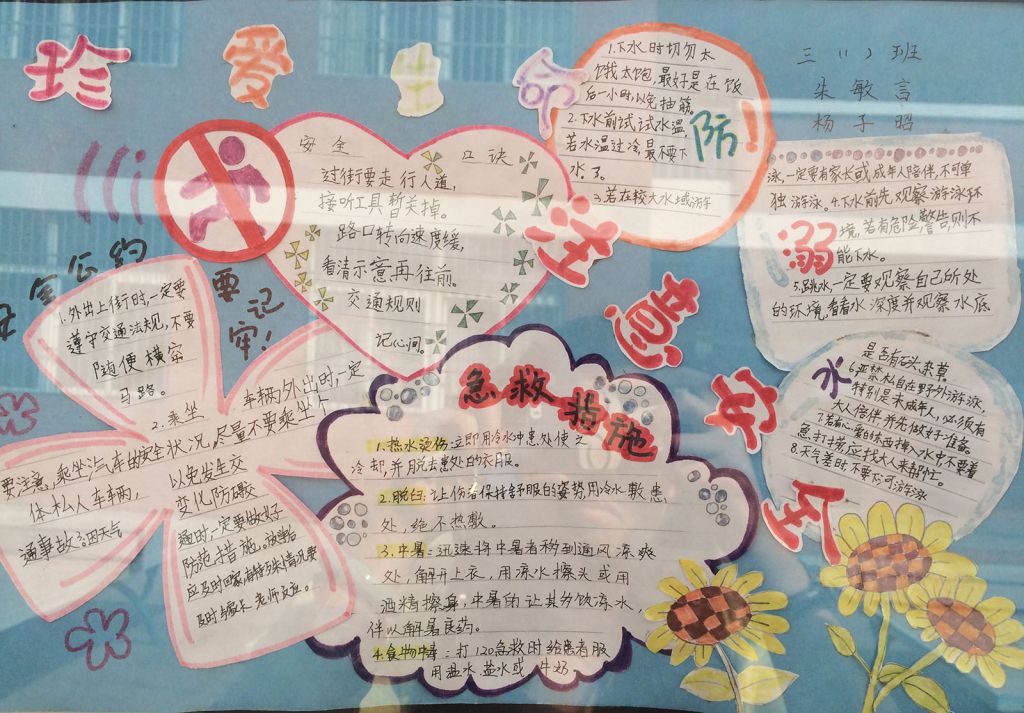 珍爱生命
注意安全
三(1)班
朱敏言
杨子昭
安全口诀
过街要走行人道，
接听工具暂关掉。
路口转向速度缓，
看清示意再往前。
交通规则
记心间。
安全公约
要记牢!
1.外出上街时,一定要
遵守交通法规,不要
随便横穿
马路。
2.乘坐车辆外出时,一定
要注意,乘坐汽车的安全状况,尽量不要乘坐个
体私人车辆,以免发生交
通事故。3.因天气变化防碍
通时,一定要做好
防范措施。
应及时回家,有特殊情况要
防溺水
1.下水时切勿太
饿太饱,最好是在饭
后一小时,以免抽筋。
2.下水前试试水温,
若水温过冷,最不要下
水了。
3.若在较大水域游
泳,一定要有家长或成年人陪伴,不可单
独游泳。4.下水前先观察游泳环
境,若有危险警告,则不
能下水。
5.跳水一定要观察自己所处
的环境,看看水深度并观察水底
是否有石头、杂草。
6.严禁私自在野外游泳,
特别是未成年人,必须有
大人陪伴并先做好准备。
7.若有心爱的东西掉入水中,不要着
急,打捞应找大人来帮忙。
8.天气差时不要下河游泳
急救措施
1.热水烫伤:立即用冷水冲患处使之
冷却,并用脱去患处的衣服。
2.脱臼:让伤者保持舒服的姿势,用冷水敷患
处,绝不热敷。
3.中暑:迅速将中暑者移到通风凉爽
处,解开上衣,用凉水擦头或用
酒精擦身,中暑的让其多饮凉水,
伴以解暑良药。
4.食物中毒:打120急救时给患者服
用温水、盐水或牛奶。